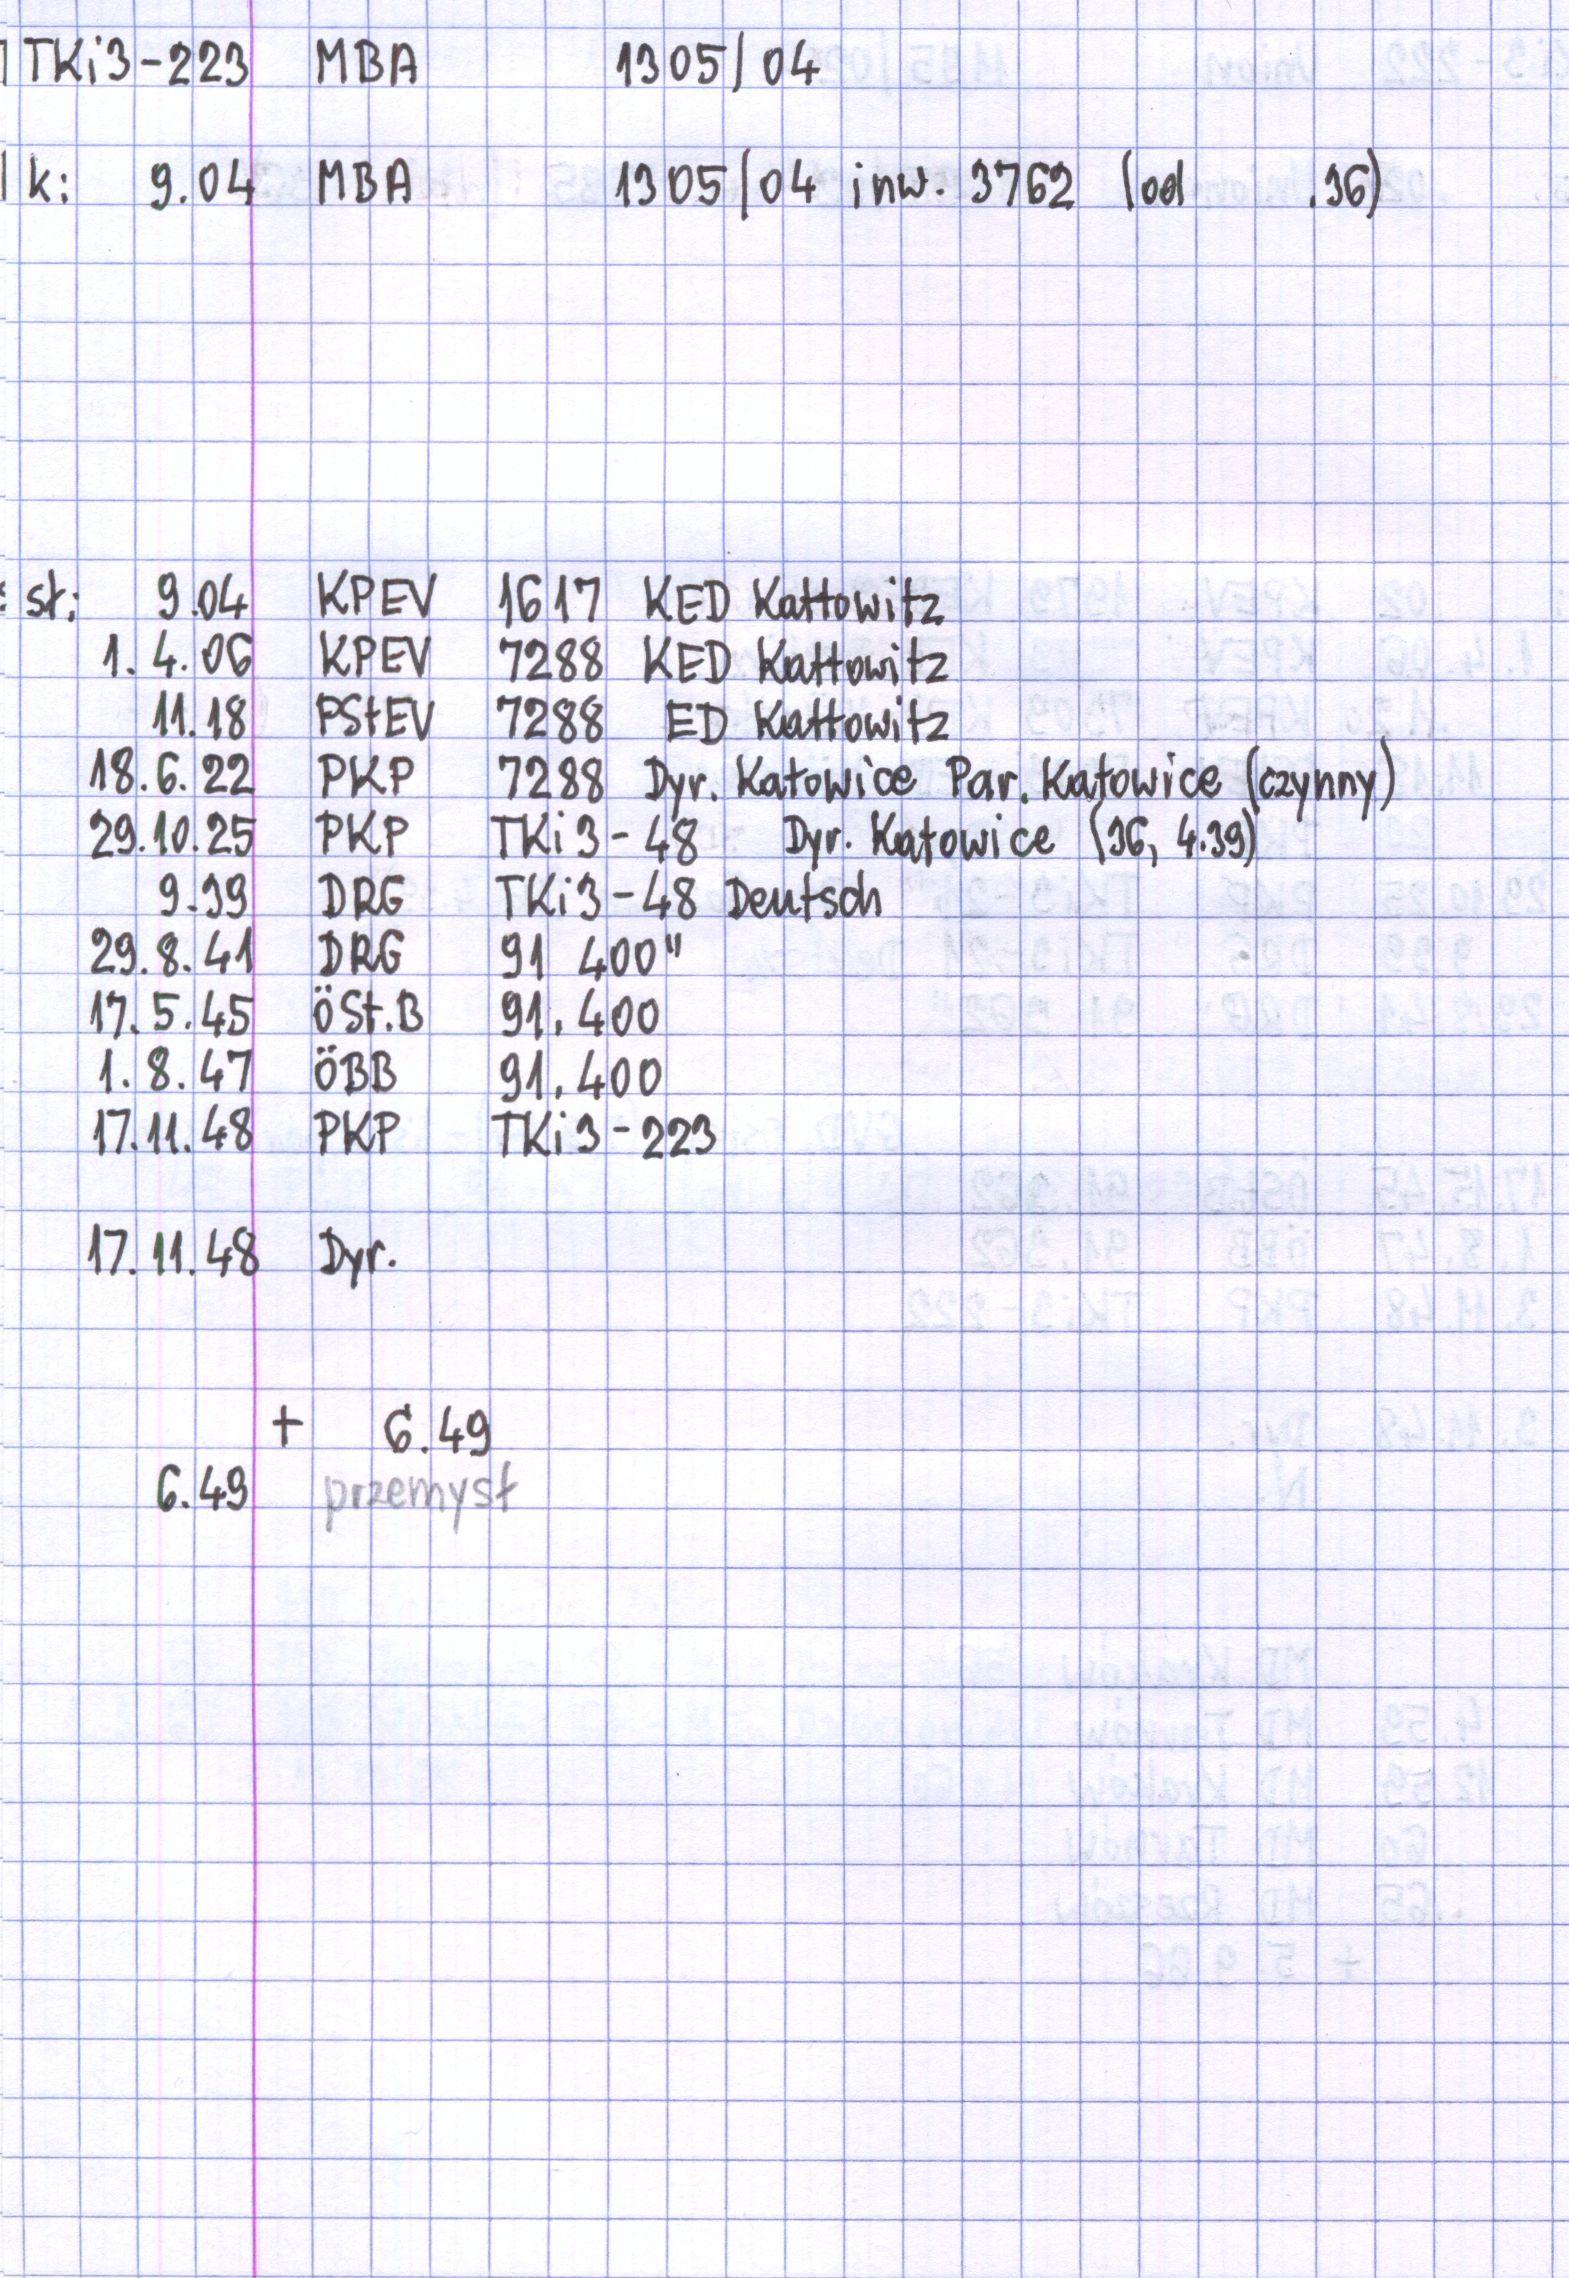 TKi3-223 MBA 1305/04
k: 9.04 MBA 1305/04 inw. 3762 (od .36)
st: 9.04 KPEV 1617 KED Kattowitz
1.4.06 KPEV 7288 KED Kattowitz
11.18 PStEV 7288 ED Kattowitz
18.6.22 PKP 7288 Dyr. Katowice Par. Katowice (czynny)
29.10.25 PKP TKi3-48 Dyr. Katowice (36, 4.39)
9.39 DRG TKi3-48 Deutsch
29.8.41 DRG 91 400"
17.5.45 ÖSt.B 91.400
1.8.47 ÖBB 91.400
17.11.48 PKP TKi3-223
17.11.48 Dyr.
+ 6.49
6.49 przemysł